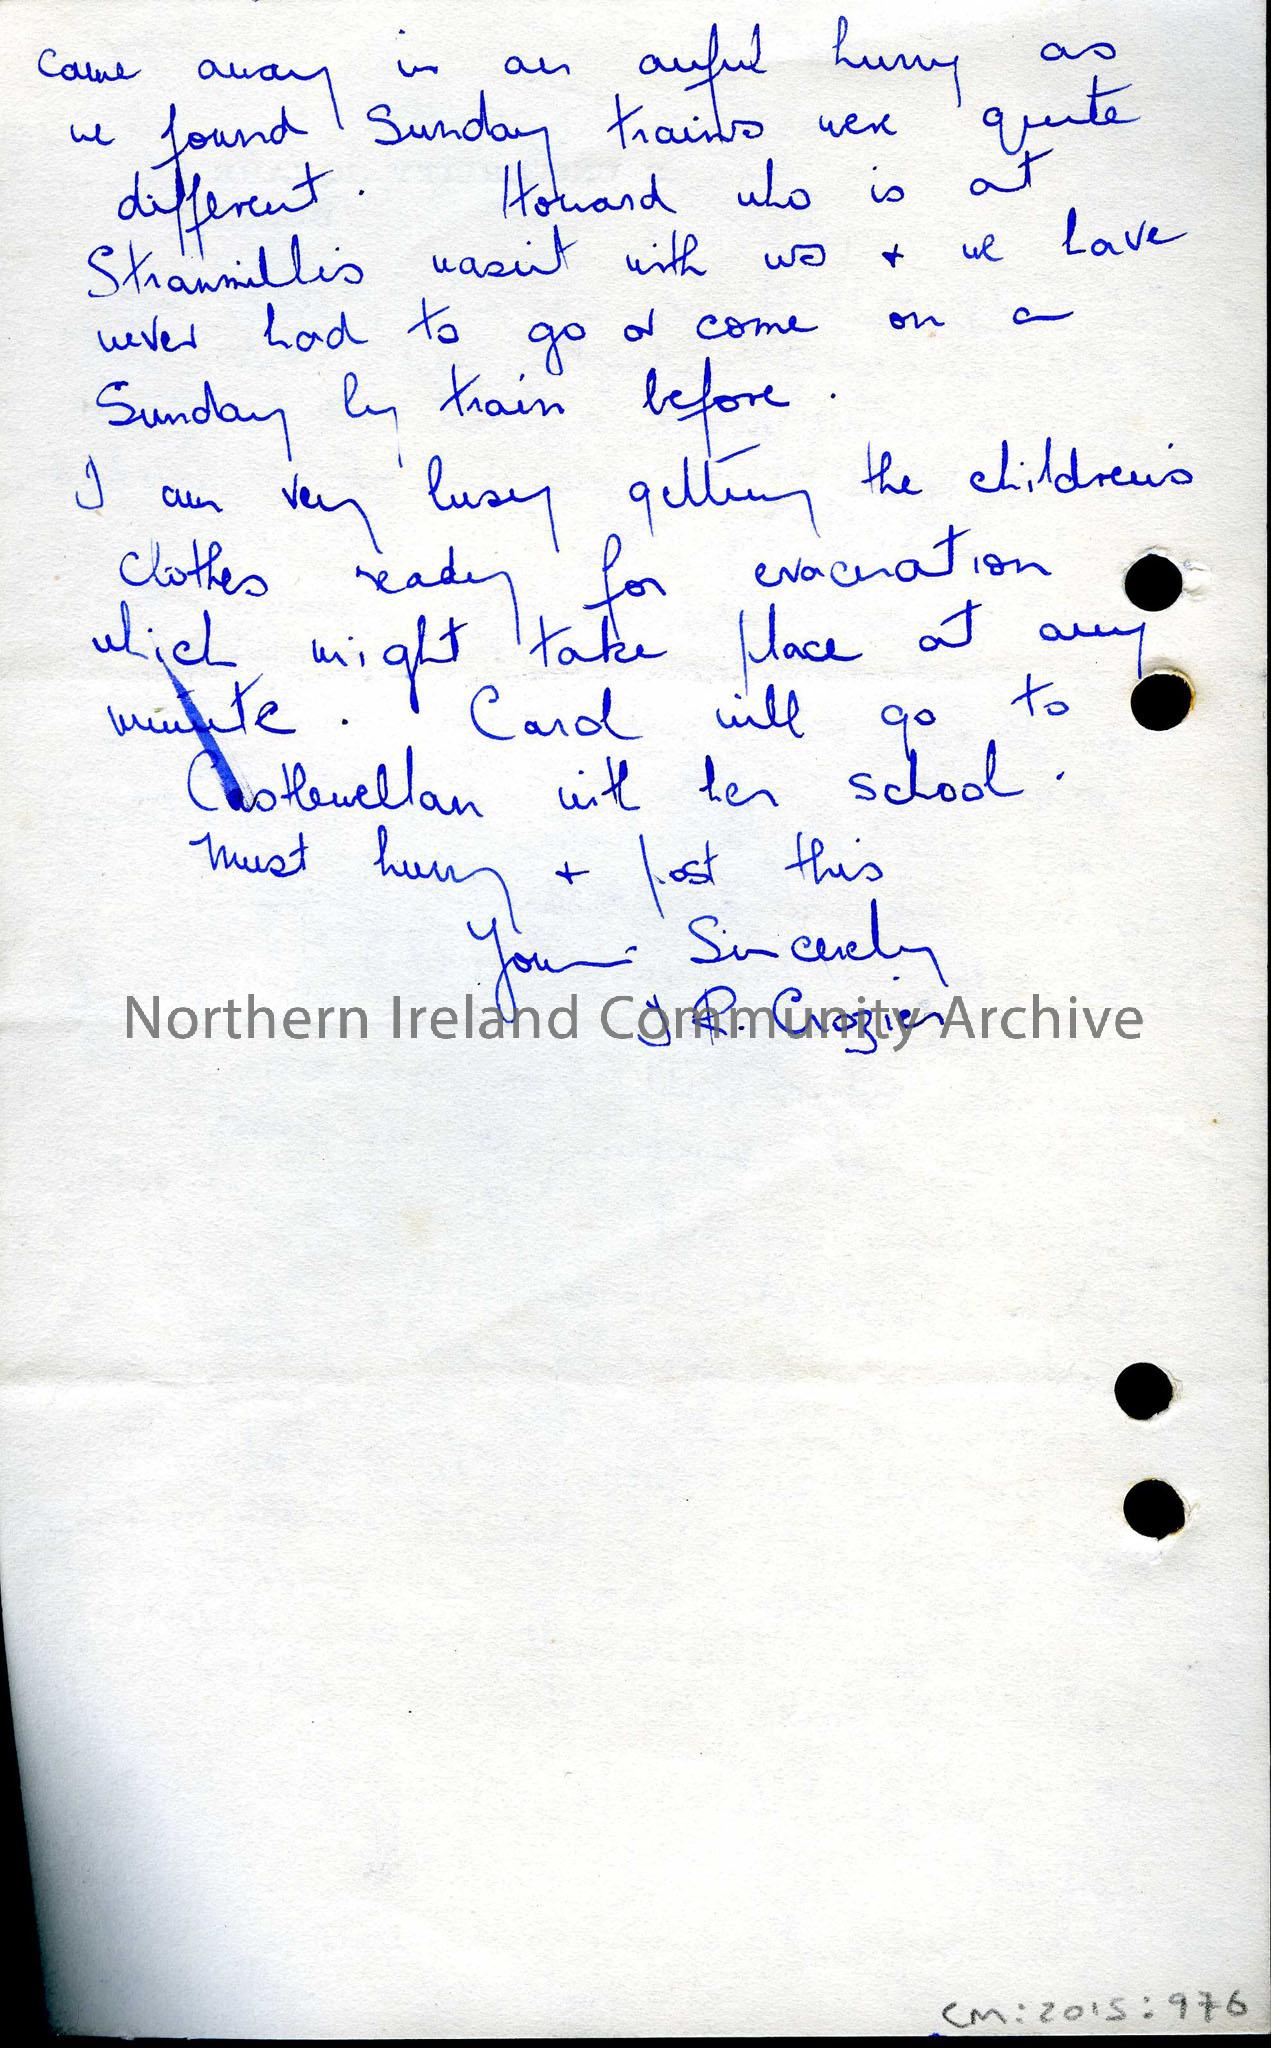 came away in an awful hurry as
we found Sunday trains were quite
different. Howard who is at
Stranmillis wasn't with us + we have
never had to go or come on a
Sunday by train before.
I am very busy getting the children's
clothes ready for evacuation
which might take place at any
minute. Carol will go to
Castlewellan with her school.
Must hurry + post this
Yours Sincerely
J R. Crozier
Northern Ireland Community Archive
CM:2015:976